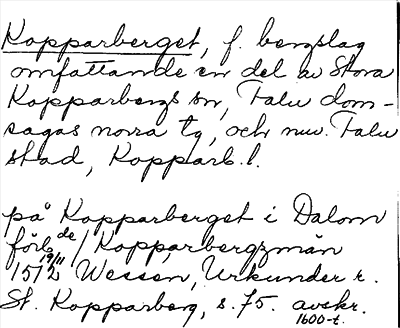 Kopparberget, f. bergslag
omfattande en del av Stora
Kopparbergs sn, Falu dom-
sagas norra tg, och nuv. Falu
stad, Kopparb. l.
på Kopparberget i Dalom
förb de / Kopparbergzmän
19/11 1512 Wessen, Urkunder r.
St. Kopparberg, s. 75. avskr.
1600-t.